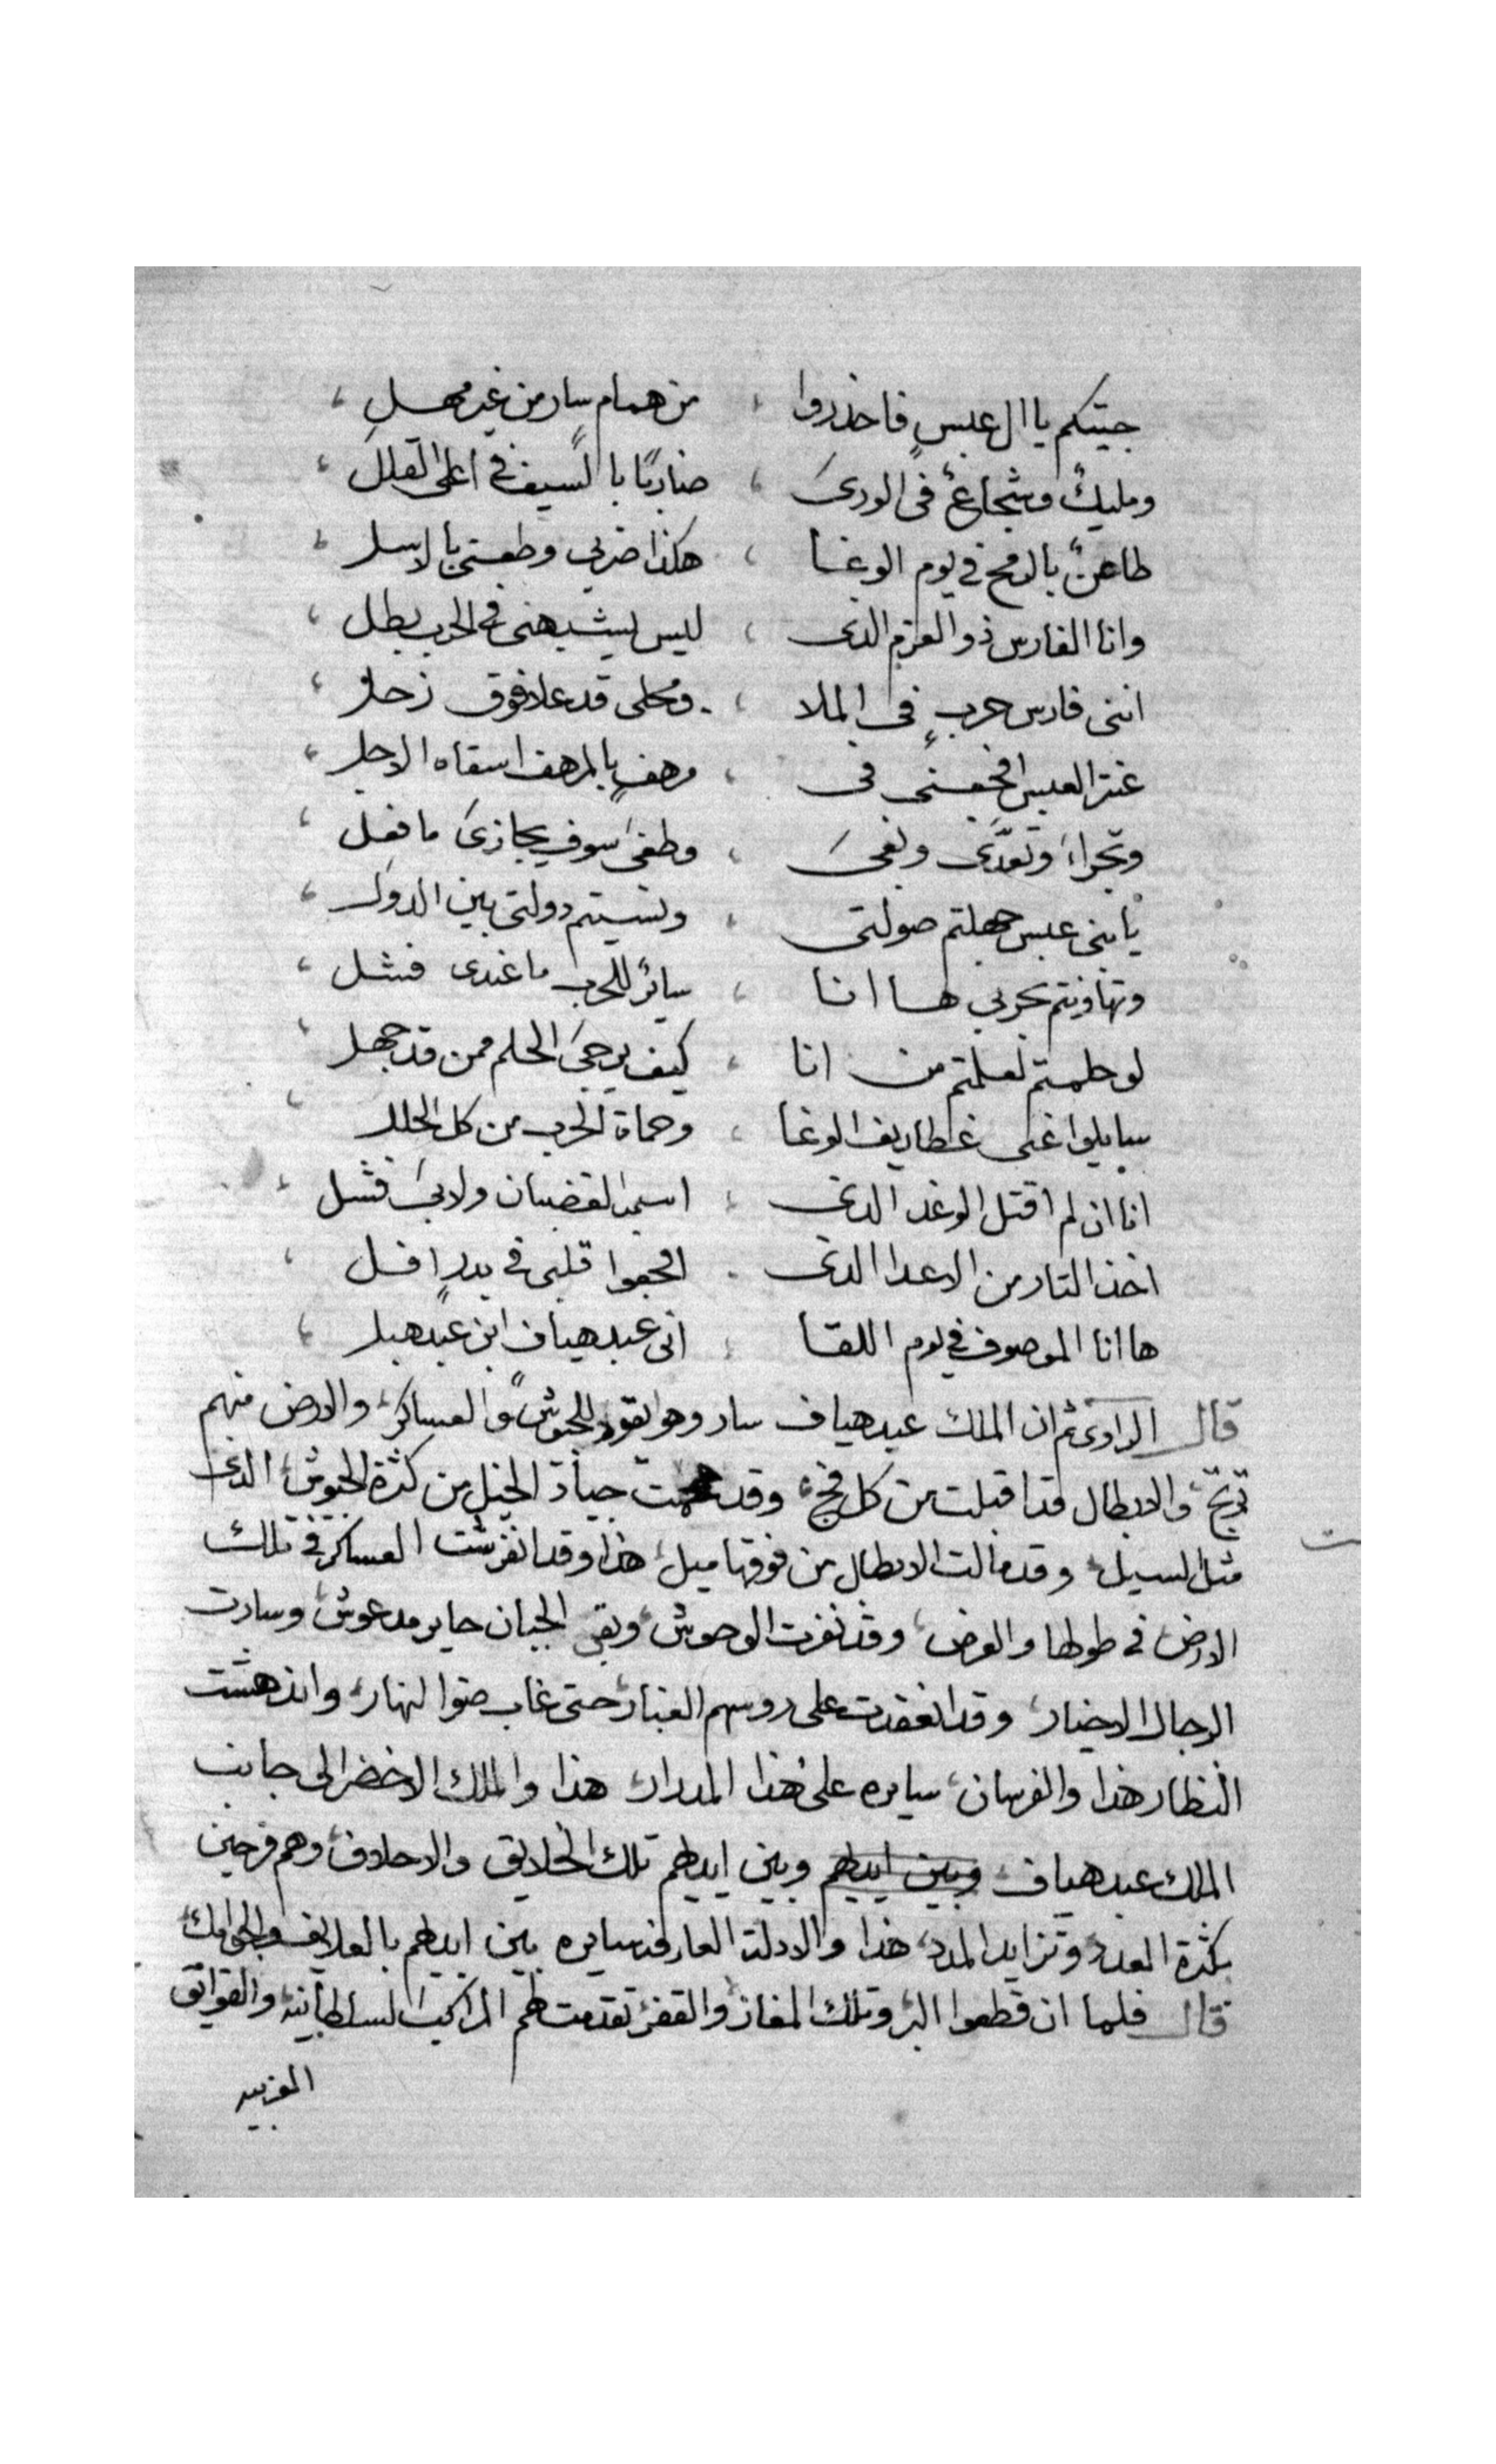 جيتكم يا ال عبسٍ فاحذروا ، من همام سار من غير مهل ،
ومليكٌ وشجاعٌ فى الورى ، ضاربًا بالسيف فى اعلى القلل ،
طاعنٌ بالرمح فى يوم الوغا ، هكذا ضربى وطعنى بالاسل ،
وانا الفارس ذو العزم الذى ، ليس يشبهنى فى الحرب بطل ،
اننى فارس حربٍ فى الملا ، ومحلى قد علا فوق زحل ،
عنتر العبسى افجعنى فى ، مرهفٍ بالمرهف اسقاه الاجل ،
وتجراء وتعدّى وبغى ، وطغى سوف يجازى ما فعل ،
يا بنى عبس جهلتم صولتى ، ونسيتم دولتى بين الدول ،
وتهاونتم بحربى ها انا ، سائرٌ للحرب ما عندى فشل ،
لو حلمتم لعلمتم من انا ، كيف يرجى الحلم ممن قد جهل ،
سايلوا عنى غطاريف الوغا ، وحماة الحرب من كل الحلل ،
انا ان لم اقتل الوغد الذى ، اسمه الغضبان ولا بى فشل ،
اخذ التار من الاعدا الذى ، افجعوا قلبى فى بدرٍ افل ،
ها انا الموصوف فى يوم اللقا ، انى عبد هياف ابن عبد هبل ،
قال الراوى ثم ان الملك عبد هياف سار وهو يقود الجيوش والعساكر، والارض منهم
ترتج، والابطال قد اقبلت من كل فج، وقد جياد الخيل من كثرة الجيوش، الذى
مثل السيل، وقد مالت الابطال من فوقها ميل، هذا وقد انفرشت العساكر فى تلك
الارض فى طولها والعرض، وقد نفرت الوحوش، وبقى الجبان حاير مدعوش، وسارت
الرجال الاخيار، وقد انعقدت على روسهم الغبار، حتى غاب ضوا النهار، واندهشت
النظار هذا والفرسان، سايره على هذا المدرار، هذا والملك الاخضر الى جانب
الملك عبد هياف، وبين ايديهم وبين ايديهم تلك الخلايق والاحلاف، وهم فرحين
بكثرة العدد وتزايد المدد، هذا والادلة العارفه سايره بين ايديهم بالعلايف والجوامك،
قال فلما ان قطعوا البر، وتلك المفاز والقفر، تقدمت لهم المراكيب السلطانيه، والقوانق
الغربيه